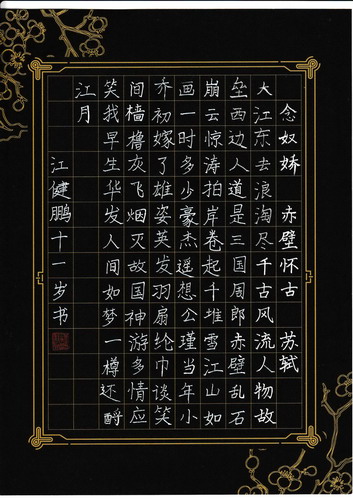 念奴娇 赤壁怀古 苏轼
大江东去浪淘尽千古风流人物故
垒西边人道是三国周郎赤壁乱石
崩云惊涛拍岸卷起千堆雪江山如
画一时多少豪杰遥想公瑾当年小
乔初嫁了雄姿英发羽扇纶巾谈笑
间樯橹灰飞烟灭故国神游多情应
笑我早生华发人间如梦一樽还酹
江月
江健鹏十一岁书